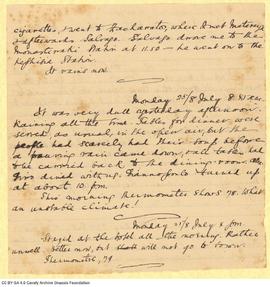 cigarettes, & went to Zacharatos, where I met Mataray
& afterwards Salvago. Salvago drove me to the
Monastiraki Stahn at 11.50 — he went on to the
Kephisia Station.
It rains now.
Monday 2 July 8
It was very dull yesterday afternoon.
Raining all the time. Tables for dinner, were
served, as usual, in the open air, but the
people had scarcely had their soup before
a pouring rain came down, & all tables had to
be carried back to the dining-room.
dined with us. turned up
at about 10 p.m.
The morning thermometer shows 78. What
an unstable climate!
Monday July p.m.
Stayed at the hotel all the morning. Rather
unwell. Better now, but shall not go to town.
Thermometer, 79
CC BY-SA 4.0 Cavafy Archive Onassis Foundation